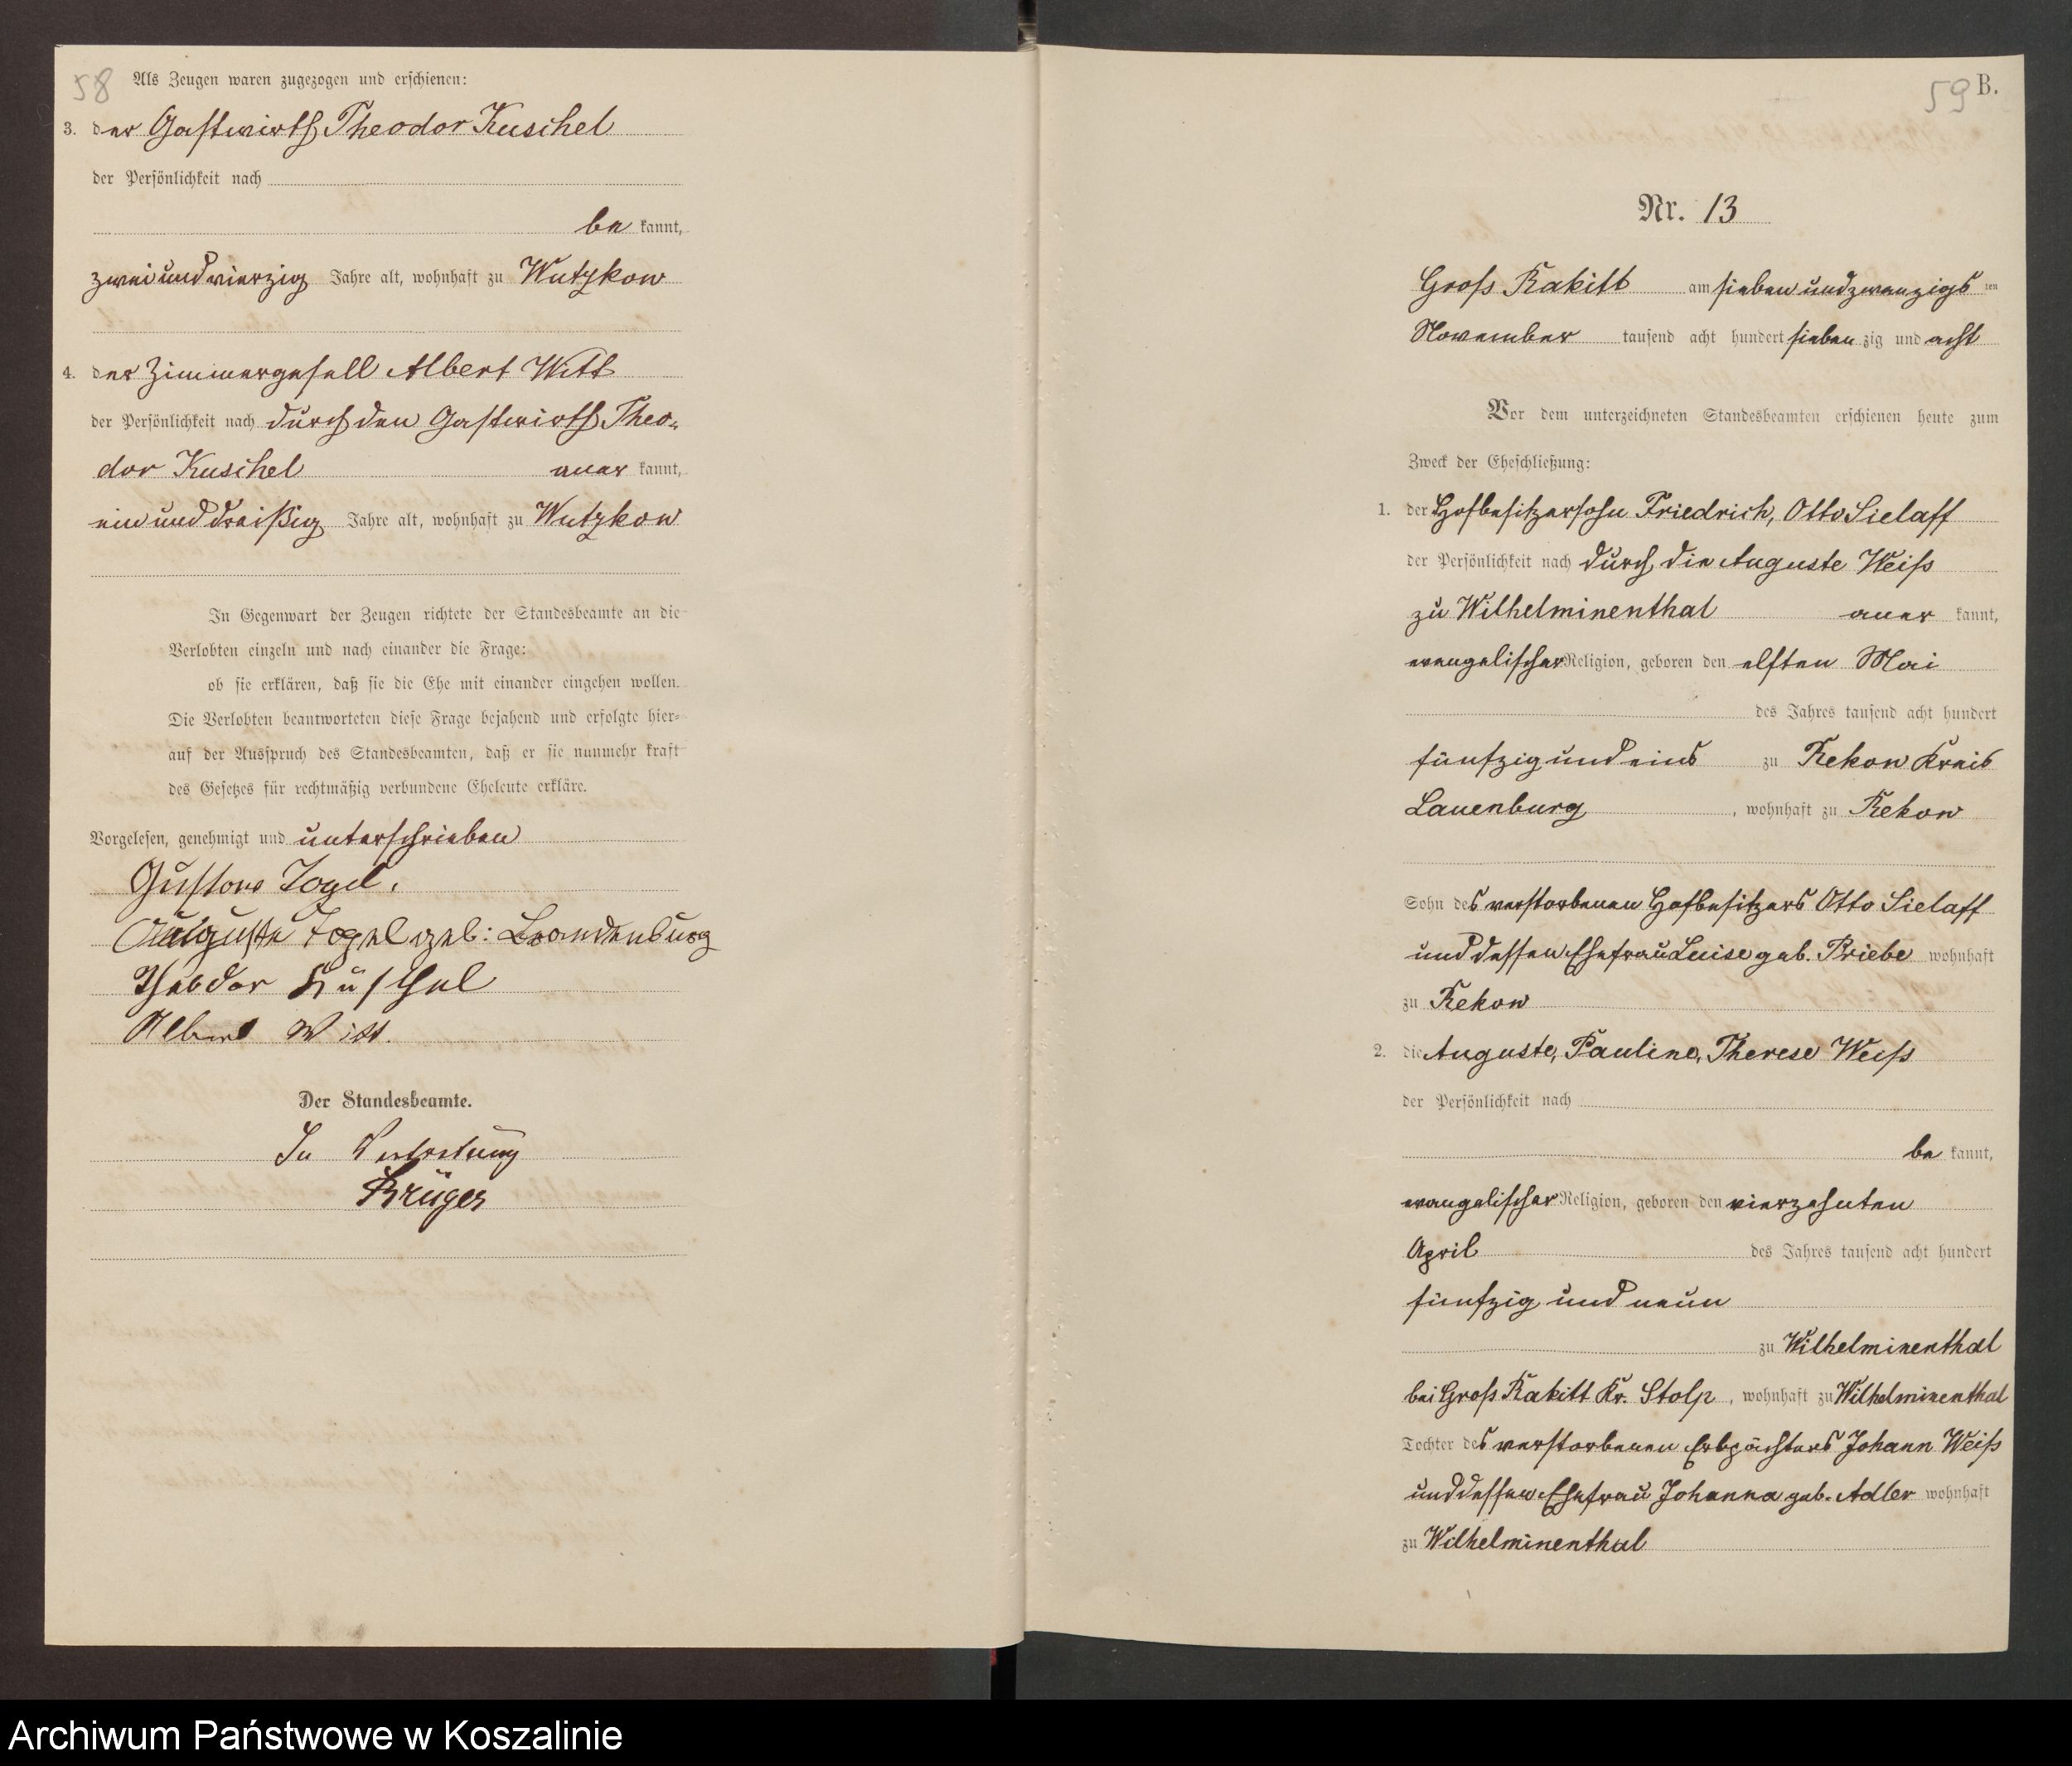 58
Als Zeugen waren zugezogen und erschienen:
3. der Gastwirth Theodor Kuschel
der Persönlichkeit nach
be kannt,
zwei und vierzig Jahre alt, wohnhaft zu Wutzkow
4. der Zimmergesell Albert Witt
der Persönlichkeit nach durch den Gastwirth Theo-
dor Kuschel aner kannt,
ein und dreißig Jahre alt, wohnhaft zu Wutzkow
In Gegenwart der Zeugen richtete der Standesbeamte an die
Verlobten einzeln und nach einander die Frage:
ob sie erklären, daß sie die Ehe mit einander eingehen wollen.
Die Verlobten beantworteten diese Frage bejahend und erfolgte hier-
auf der Ausspruch des Standesbeamten, daß er sie nunmehr kraft
des Gesetzes für rechtmäßig verbundene Eheleute erkläre.
Vorgelesen, genehmigt und unterschrieben
Gustav Togel.
Auguste Togel geb: Brandenburg
Theodor Kuschel
Albert Witt.
Der Standesbeamte.
In Vertretung
Krüger
59 B.
Nr. 13
Gross Rakitt am sieben und zwanzigs ten
November tausend acht hundert sieben zig und acht
Vor dem unterzeichneten Standesbeamten erschienen heute zum
Zweck der Eheschließung:
1. der Hofbesitzersohn Friedrich, Otto Sielaff
der Persönlichkeit nach durch die Auguste Weiss
zu Wilhelminenthal aner kannt,
evangelischer Religion, geboren den elften Mai
des Jahres tausend acht hundert
fünfzig und eins zu Rekow Kreis
Lauenburg, wohnhaft zu Rekow
Sohn des verstorbenen Hofbesitzers Otto Sielaff
und dessen Ehefrau Luise geb. Priebe wohnhaft
zu Rekow
2. die Auguste, Pauline, Therese Weiss
der Persönlichkeit nach
be kannt,
evangelischer Religion, geboren den vierzehnten
April des Jahres tausend acht hundert
fünfzig und neun
zu Wilhelminenthal
bei Gross Rakitt Kr. Stolp, wohnhaft zu Wilhelminenthal
Tochter des verstorbenen Erbpächters Johann Weiss
und dessen Ehefrau Johanna geb. Adler wohnhaft
zu Wilhelminenthal
Archiwum Państwowe w Koszalinie